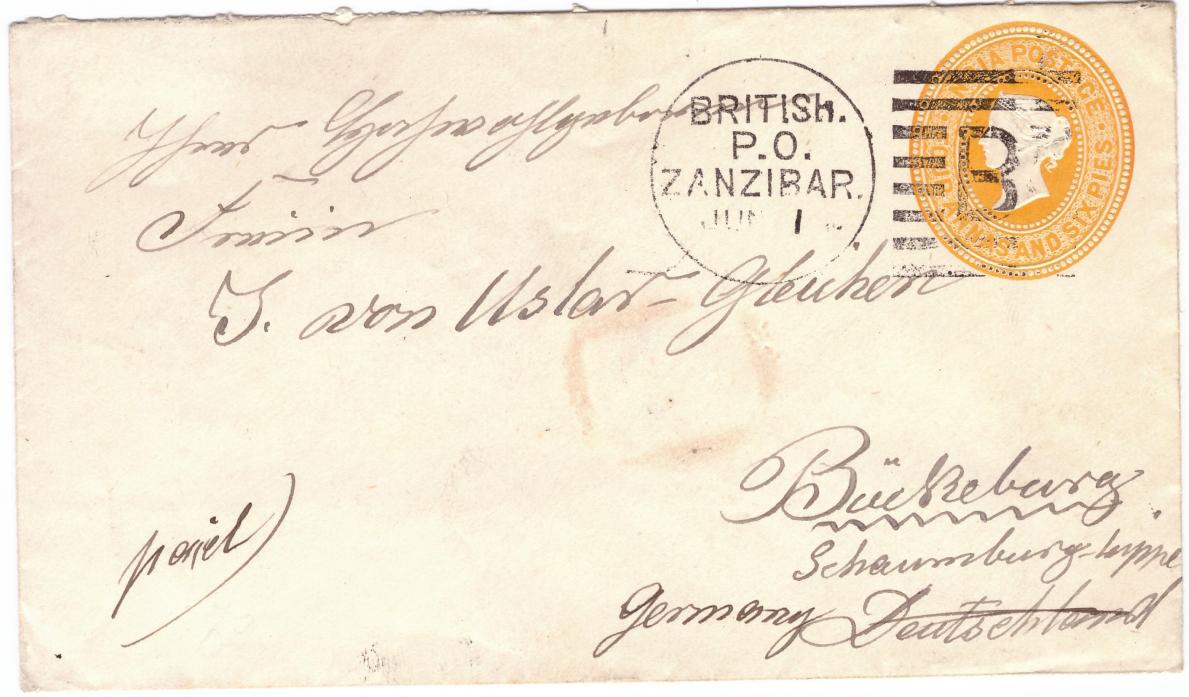 INDIA POSTAGE
TWO ANNAS AND SIX PIES
BRITISH.
P.O.
ZANZIBAR.
JUN 1
B
Hochwohlgeboren
J. von Uslar-Gleichen
Bückeburg.
Schaumburg-Lippe
Germany Deutschland